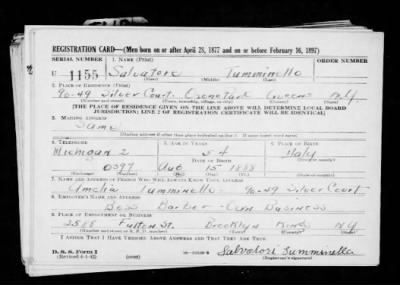 REGISTRATION CARD—(Men born on or after April 28, 1877 and on or before February 16, 1897)
SERIAL NUMBER 1. NAME (Print) ORDER NUMBER
U 1155 Salvatore Tumminello
(First) (Middle) (Last)
2. PLACE OF RESIDENCE (Print)
90-49 Silver Court. Queens N.Y
(Number and street) (Town, township, village, or city) (County) (State)
[THE PLACE OF RESIDENCE GIVEN ON THE LINE ABOVE WILL DETERMINE LOCAL BOARD
JURISDICTION; LINE 2 OF REGISTRATION CERTIFICATE WILL BE IDENTICAL]
3. MAILING ADDRESS
Same
[Mailing address if other than place indicated on line 2. If same insert word same]
4. TELEPHONE 5. AGE IN YEARS 6. PLACE OF BIRTH
Michigan 2 54 Italy
DATE OF BIRTH
0397 Aug 15 1888
7. NAME AND ADDRESS OF PERSON WHO WILL ALWAYS KNOW YOUR ADDRESS
Amelia Tumminello 90-49 Silver Court
8. EMPLOYER'S NAME AND ADDRESS
Boss Barber - Own Business
9. PLACE OF EMPLOYMENT OR BUSINESS
Fulton St. Brooklyn Kings NY
(Number and street or R. F. D. number) (Town) (County) (State)
I AFFIRM THAT I HAVE VERIFIED ABOVE ANSWERS AND THAT THEY ARE TRUE.
D. S. S. Form 1
(Revised 4-1-42) Salvatori Tumminello
(Registrant's signature)